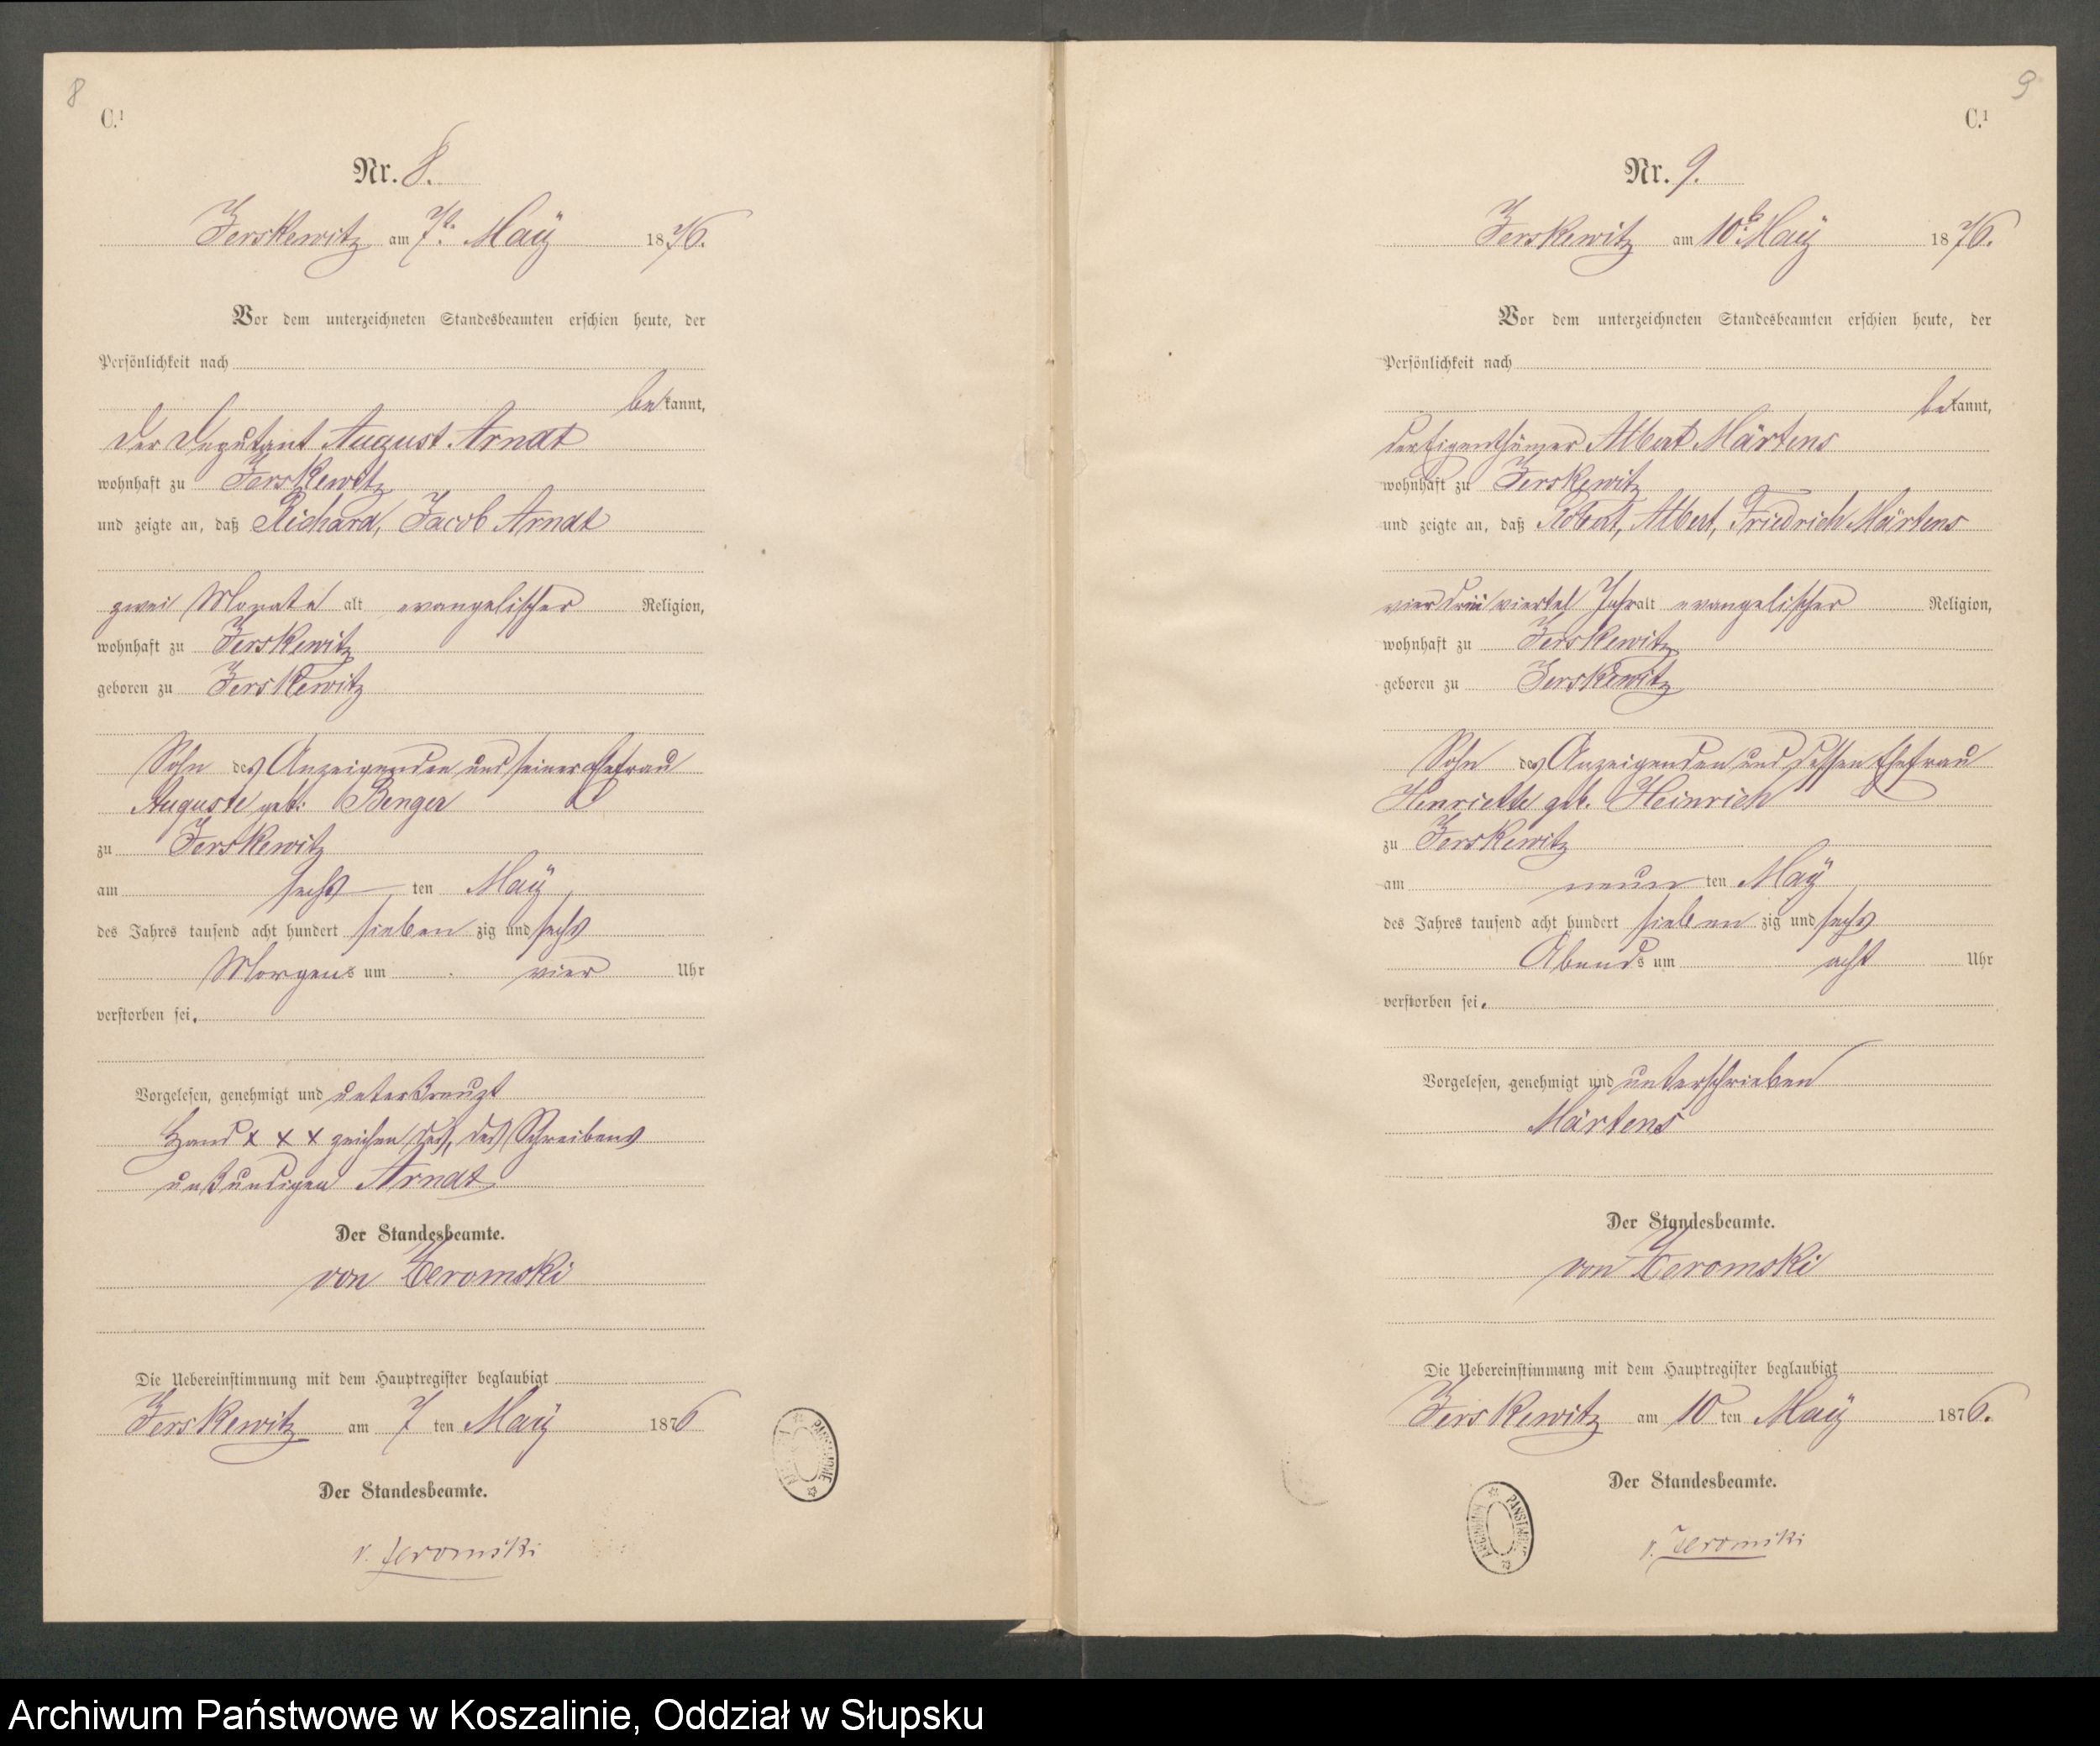 8
C.¹
Nr. 8.
Jerskewitz am 7t. Maÿ 1876.
Vor dem unterzeichneten Standesbeamten erschien heute, der
Persönlichkeit nach
bekannt,
der Deputant August Arndt
wohnhaft zu Jerskewitz
und zeigte an, daß Richard, Jacob Arndt
zwei Monate alt evangelischer Religion,
wohnhaft zu Jerskewitz
geboren zu Jerskewitz
Sohn des Anzeigenden und seiner Ehefrau
Auguste geb. Benger
zu Jerskewitz
am sechs ten Maÿ
des Jahres tausend acht hundert sieben zig und sechs
Morgens um vier Uhr
verstorben sei.
Vorgelesen, genehmigt und unterkreuzt
Hand x x x zeichen des, des Schreibens
unkundigen Arndt
Der Standesbeamte.
von Zeromski
Die Uebereinstimmung mit dem Hauptregister beglaubigt
Jerskewitz am 7 ten Maÿ 1876
Der Standesbeamte.
v. Zeromski
9
C.¹
Nr. 9.
Jerskewitz am 10t Maÿ 1876.
Vor dem unterzeichneten Standesbeamten erschien heute, der
Persönlichkeit nach
bekannt,
der Eigenthümer Albert Märtens
wohnhaft zu Jerskewitz
und zeigte an, daß Robert, Albert, Friedrich Märtens
vier drei viertel Jahr alt evangelischer Religion,
wohnhaft zu Jerskewitz
geboren zu Jerskewitz
Sohn des Anzeigenden und dessen Ehefrau
Henriette geb. Heinrich
zu Jerskewitz
am neun ten Maÿ
des Jahres tausend acht hundert sieben zig und sechs
Abends um acht Uhr
verstorben sei.
Vorgelesen, genehmigt und unterschrieben
Märtens
Der Standesbeamte.
von Zeromski
Die Uebereinstimmung mit dem Hauptregister beglaubigt
Jerskewitz am 10 ten Maÿ 1876.
Der Standesbeamte.
v. Zeromski
Archiwum Państwowe w Koszalinie, Oddział w Słupsku